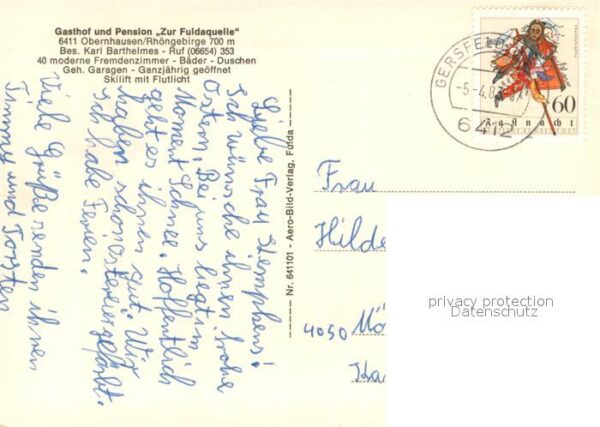 Gasthof und Pension „Zur Fuldaquelle"
6411 Obernhausen/Rhöngebirge 700 m
Bes. Karl Barthelmes - Ruf (06654) 353
40 moderne Fremdenzimmer - Bäder - Duschen
Geh. Garagen - Ganzjährig geöffnet
Skilift mit Flutlicht
Liebe Frau Stemphens!
Ich wünsche ihnen frohe
Ostern. Bei uns liegt im
Moment Schnee. Hoffentlich
geht es ihnen gut. Wir
haben schon Ostereier gefärbt.
Ich habe Ferien.
Viele Grüße senden ihnen
Timmy und Torsten
Nr. 641101 - Aero-Bild-Verlag, Fulda
GERSFELD
-5-4.8
6412
60
Fastnacht
DEUTSCHE BUNDESPOST
Frau
Hilde
4050 Mö
Ka
privacy protection
Datenschutz